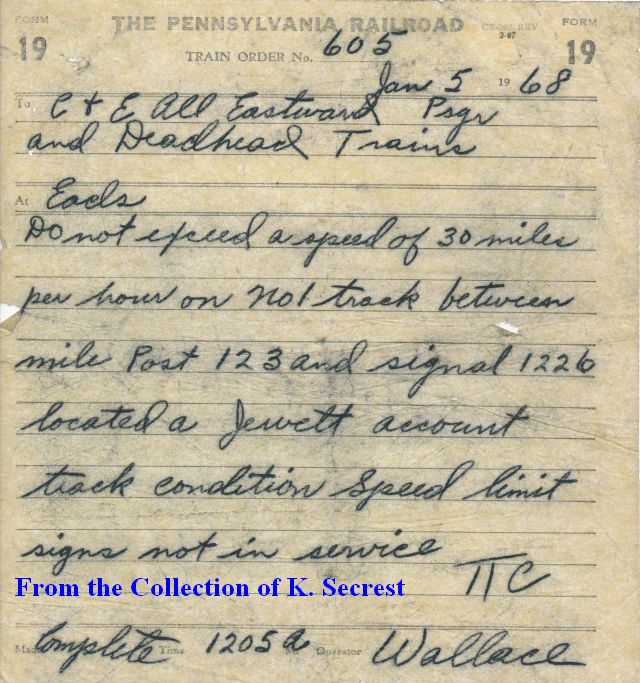 FORM 19 THE PENNSYLVANIA RAILROAD CT-262 REV 2-67 FORM 19
TRAIN ORDER No. 605
Jan 5 1968
To C & E All Eastward Psgr
and Deadhead Trains
At Eads
Do not exceed a speed of 30 miles
per hour on No 1 track between
mile Post 123 and signal 1226
located a Jewett account
track condition Speed limit
signs not in service
TTC
From the Collection of K. Secrest
Made Complete Time 1205 a M Operator Wallace